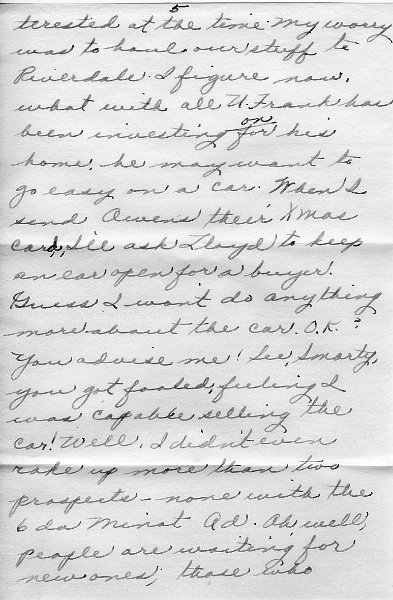 5
terested at the time. My worry
was to haul our stuff to
Riverdale. I figure now,
what with all U. Frank has
been investing for on his
home, he may want to
go easy on a car. When I
send Owens their Xmas
card, I'll ask Lloyd to keep
an ear open for a buyer.
Guess I won't do anything
more about the car. O.K.?
You advise me! See, Smarty,
you got fooled, feeling I
was capable selling the
car! Well, I didn't even
rake up more than two
prospects - none with the
6 da Minot Ad. Oh well,
people are waiting for
new ones; those who